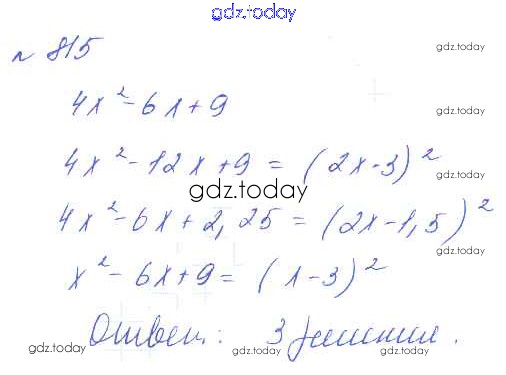 gdz.today
№ 815
gdz.today
4x² - 6x + 9
gdz.today
4x² - 12x + 9 = (2x - 3)²
gdz.today
gdz.today
4x² - 6x + 2,25 = (2x - 1,5)²
gdz.today
x² - 6x + 9 = (x - 3)²
Ответ: 3
gdz.today gdz.today gdz.today